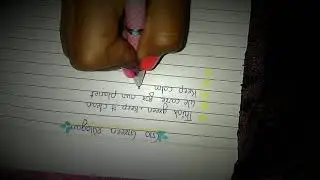 Go Green slogan
Think green, keep it clean
We care for our planet
Keep calm